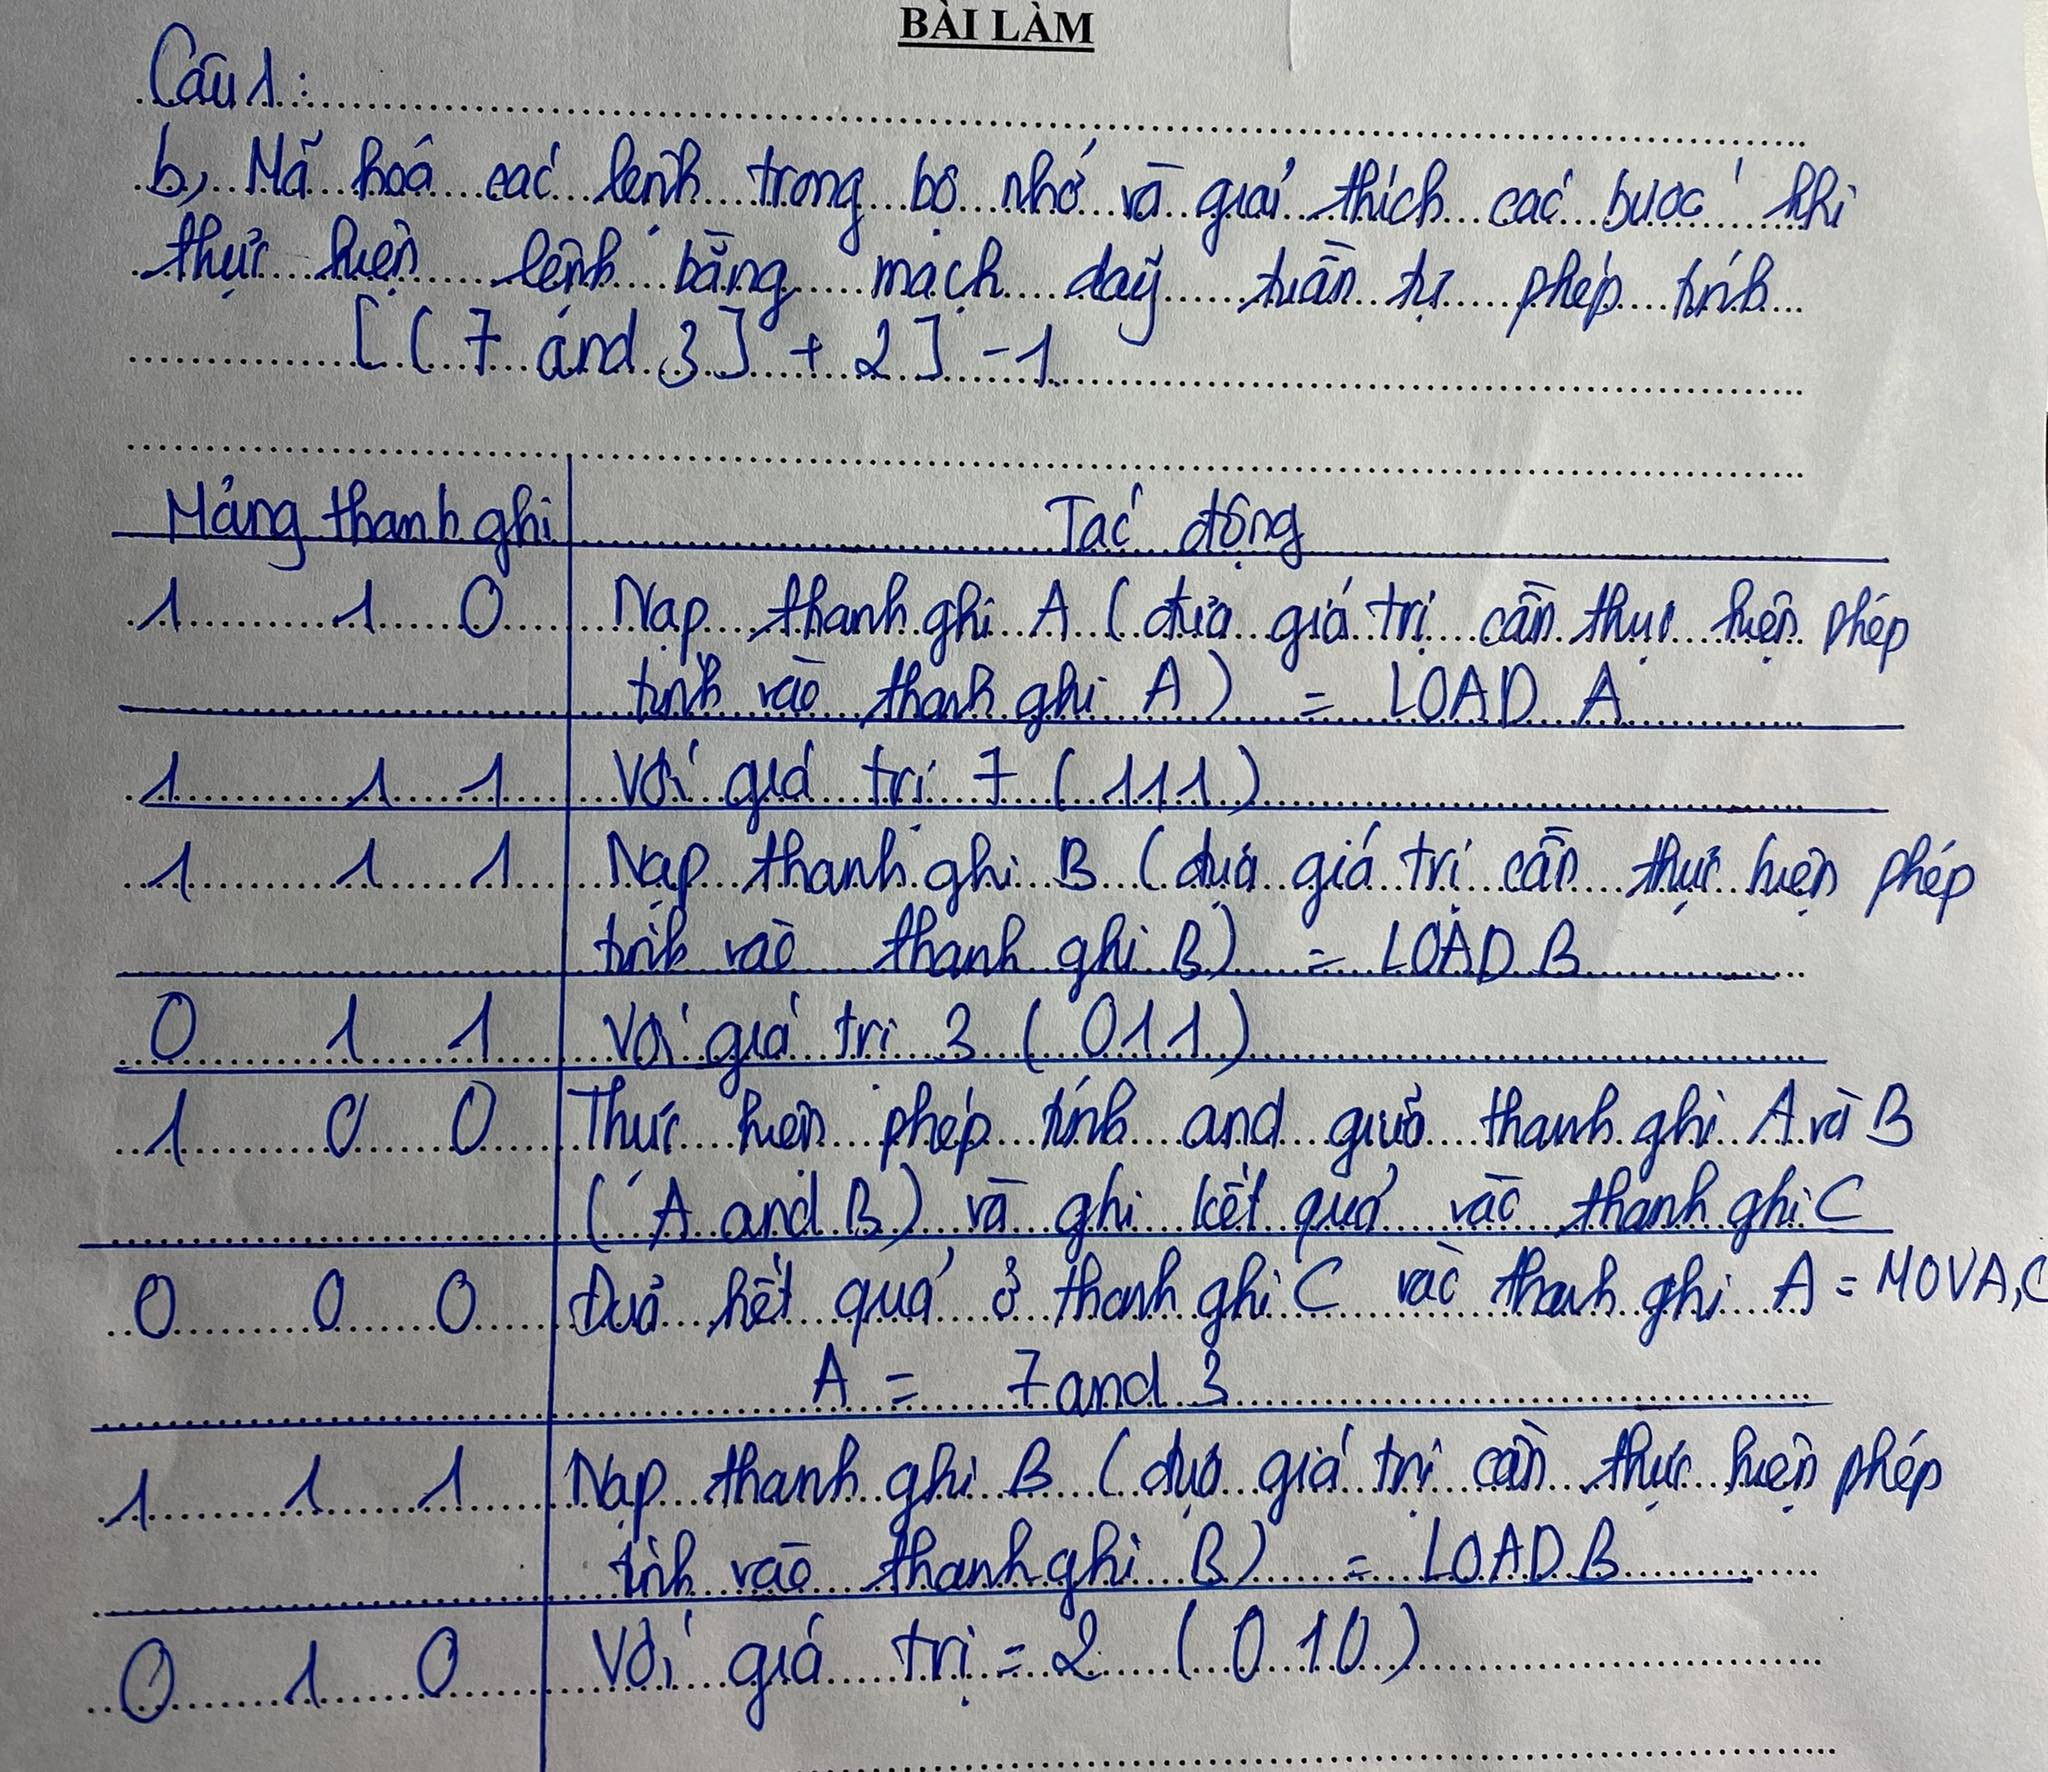 BÀI LÀM
Câu 1:
b, Mã hoá các lệnh trong bộ nhớ và giải thích các bước khi
thực hiện lệnh bằng mạch dãy tuần tự phép tính
[(7 and 3] + 2] - 1
Mảng thanh ghi Tác động
1 1 0 Nạp thanh ghi A (đưa giá trị cần thực hiện phép
tính vào thanh ghi A) = LOAD A
1 1 1 Với giá trị 7 (111)
1 1 1 Nạp thanh ghi B (đưa giá trị cần thực hiện phép
tính vào thanh ghi B) = LOAD B
0 1 1 Với giá trị 3 (011)
1 0 0 Thực hiện phép tính and giữa thanh ghi A và B
(A and B) và ghi kết quả vào thanh ghi C
0 0 0 Đưa kết quả ở thanh ghi C vào thanh ghi A = MOVA,C
A = 7 and 3
1 1 1 Nạp thanh ghi B (đưa giá trị cần thực hiện phép
tính vào thanh ghi B) = LOAD B
0 1 0 Với giá trị = 2 (010)